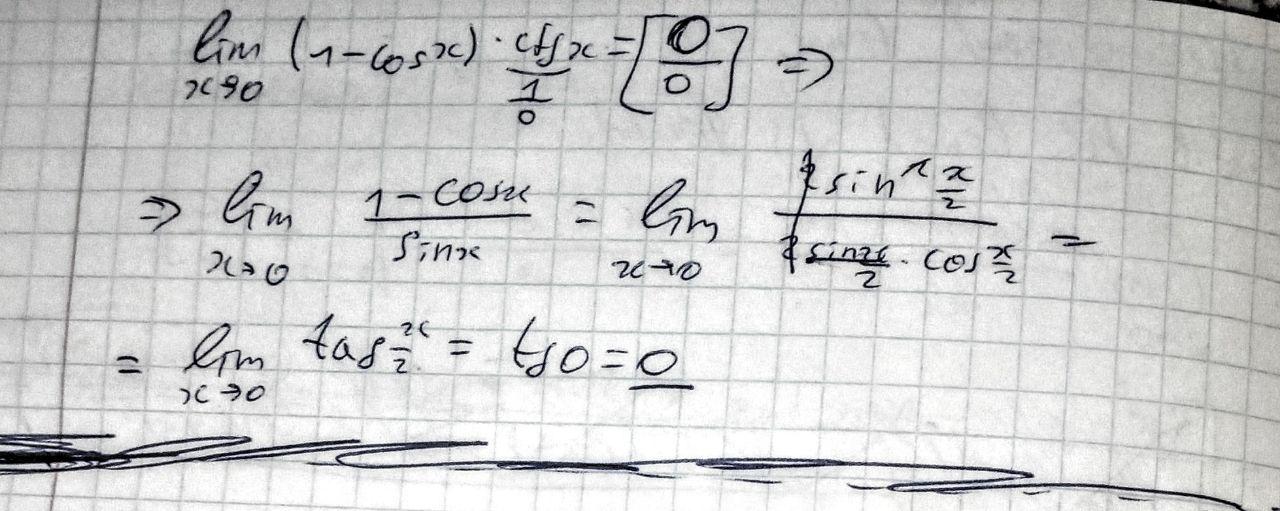 lim x→0 (1-cosx)·ctgx 1/0 = [0/0] ⇒
⇒ lim x→0 1-cosx/sinx = lim x→0 2sin²x/2 / 2sinx/2·cosx/2 =
= lim x→0 tagx/2 = tg0=0